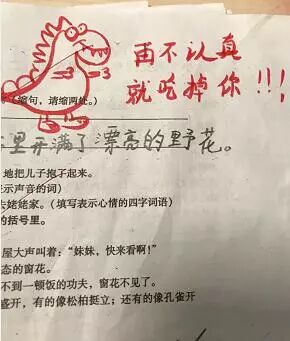 再不认真
就吃掉你!!!
(缩句，请缩两处。)
里开满了漂亮的野花。
地把儿子抱了起来。
示声音的词)
去姥姥家。(填写表示心情的四字词语)
的括号里。
屋大声叫着："妹妹，快来看啊!"
态的窗花。
不到一顿饭的功夫，窗花不见了。
盛开，有的像松柏挺立；还有的像孔雀开